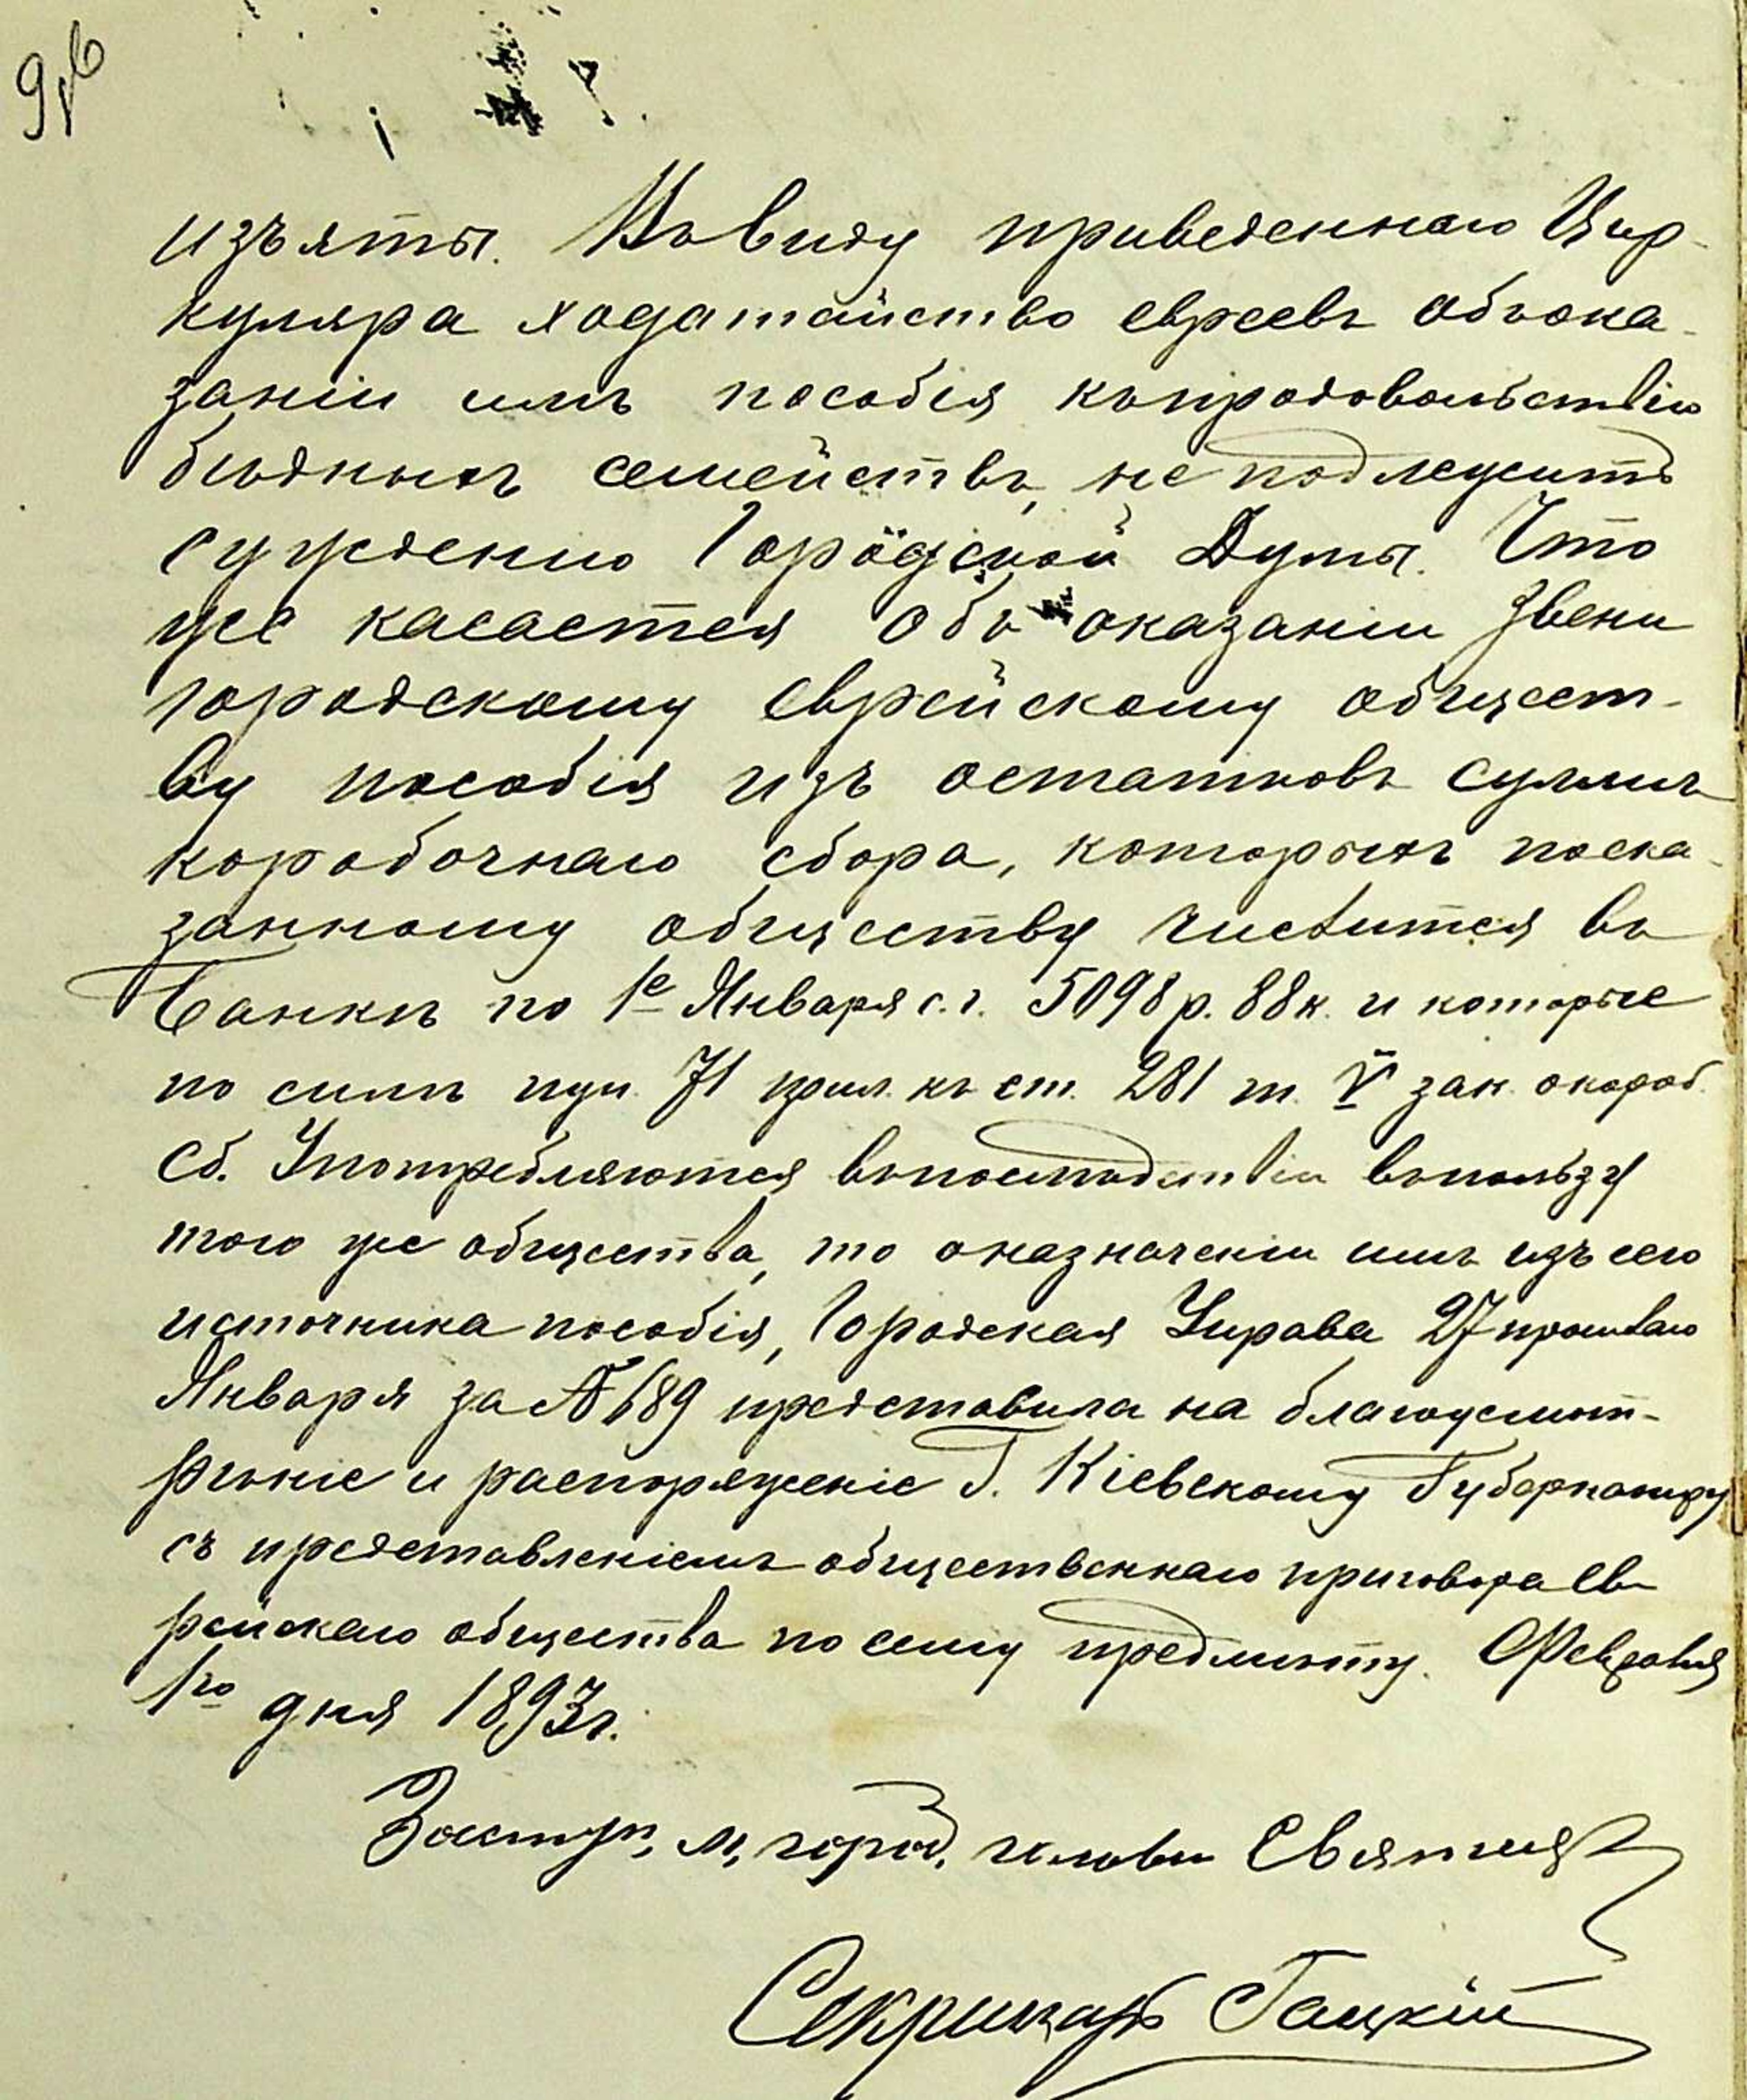 изъяты. Въ виду приведеннаго Цир-
куляра ходатайство евреевъ объ ока-
заніи имъ пособія къ продовольствію
бѣдныхъ семействъ, не подлежитъ
сужденію Городской Думы. Что
же касается объ оказаніи Звени
городскому еврейскому общест-
ву пособія изъ остатковъ суммъ
коробочнаго сбора, которыхъ по ска-
занному обществу числится въ
Банкѣ по 1е Января с. г. 5098 р. 88 к. и которые
по силѣ пун. 71 прил. къ ст. 281 т. V зак. о короб.
сб. Употребляются въ послѣдствіи въ пользу
того же общества, то о назначеніи имъ изъ сего
источника пособія, Городская Управа 27 прошлаго
Января за № 189 представила на благоусмот-
рѣніе и распоряженіе Г. Кіевскому Губернатору
съ представленіемъ общественнаго приговора ев-
рейскаго общества по сему предмету. Февраля
1го дня 1893 г.
Заступ. м. город. головы
Секретарь Гацкій